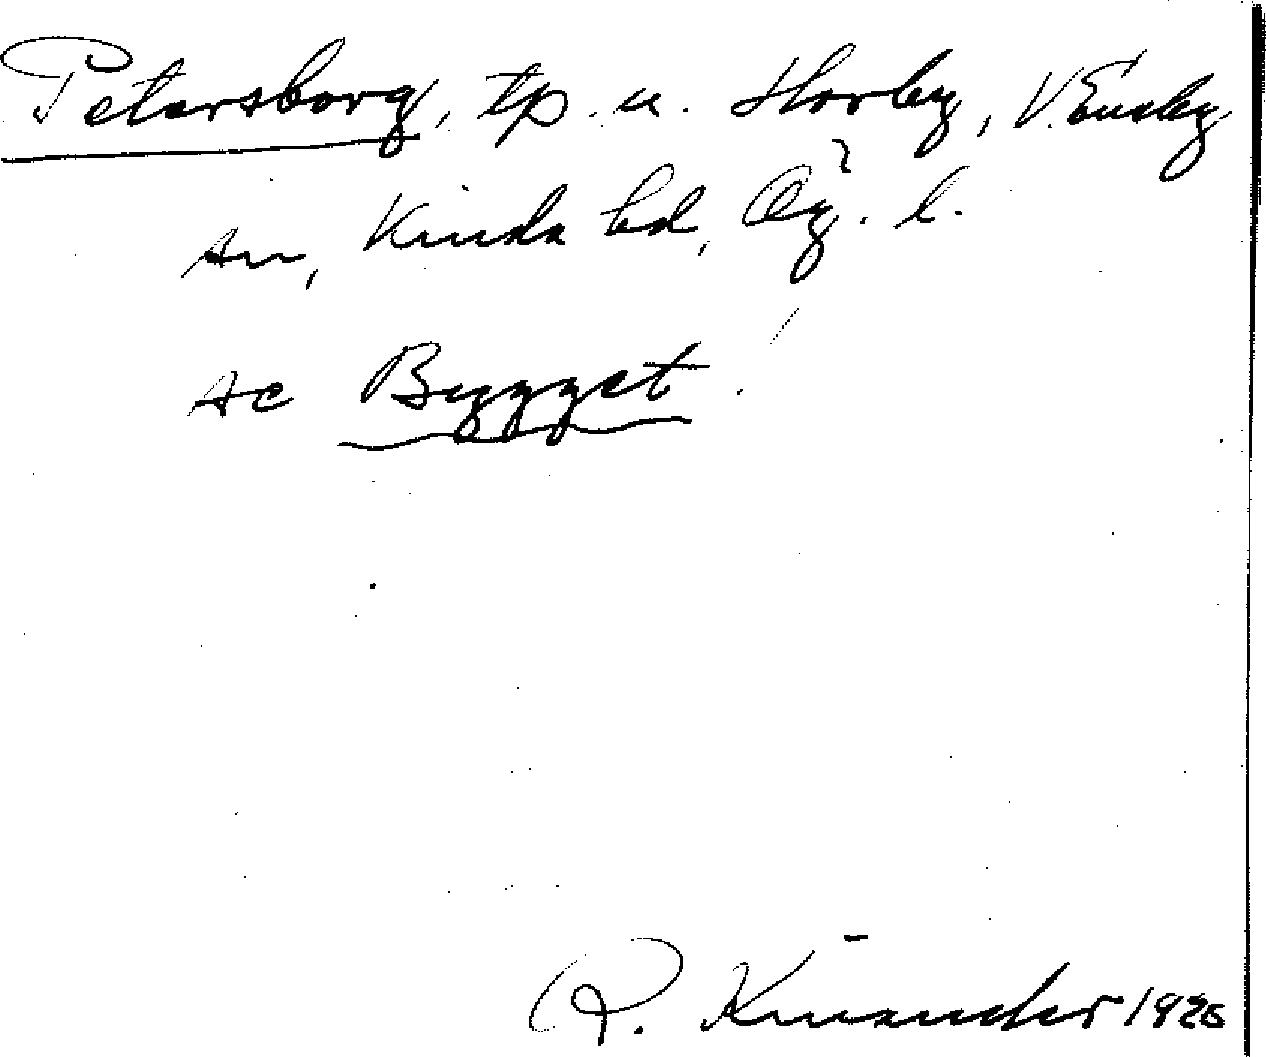 Petersborg, tp. u. Horby, V. Eneby
sn, Kinda hd, Ög. l.
se Bygget.
R. Kinander 1926